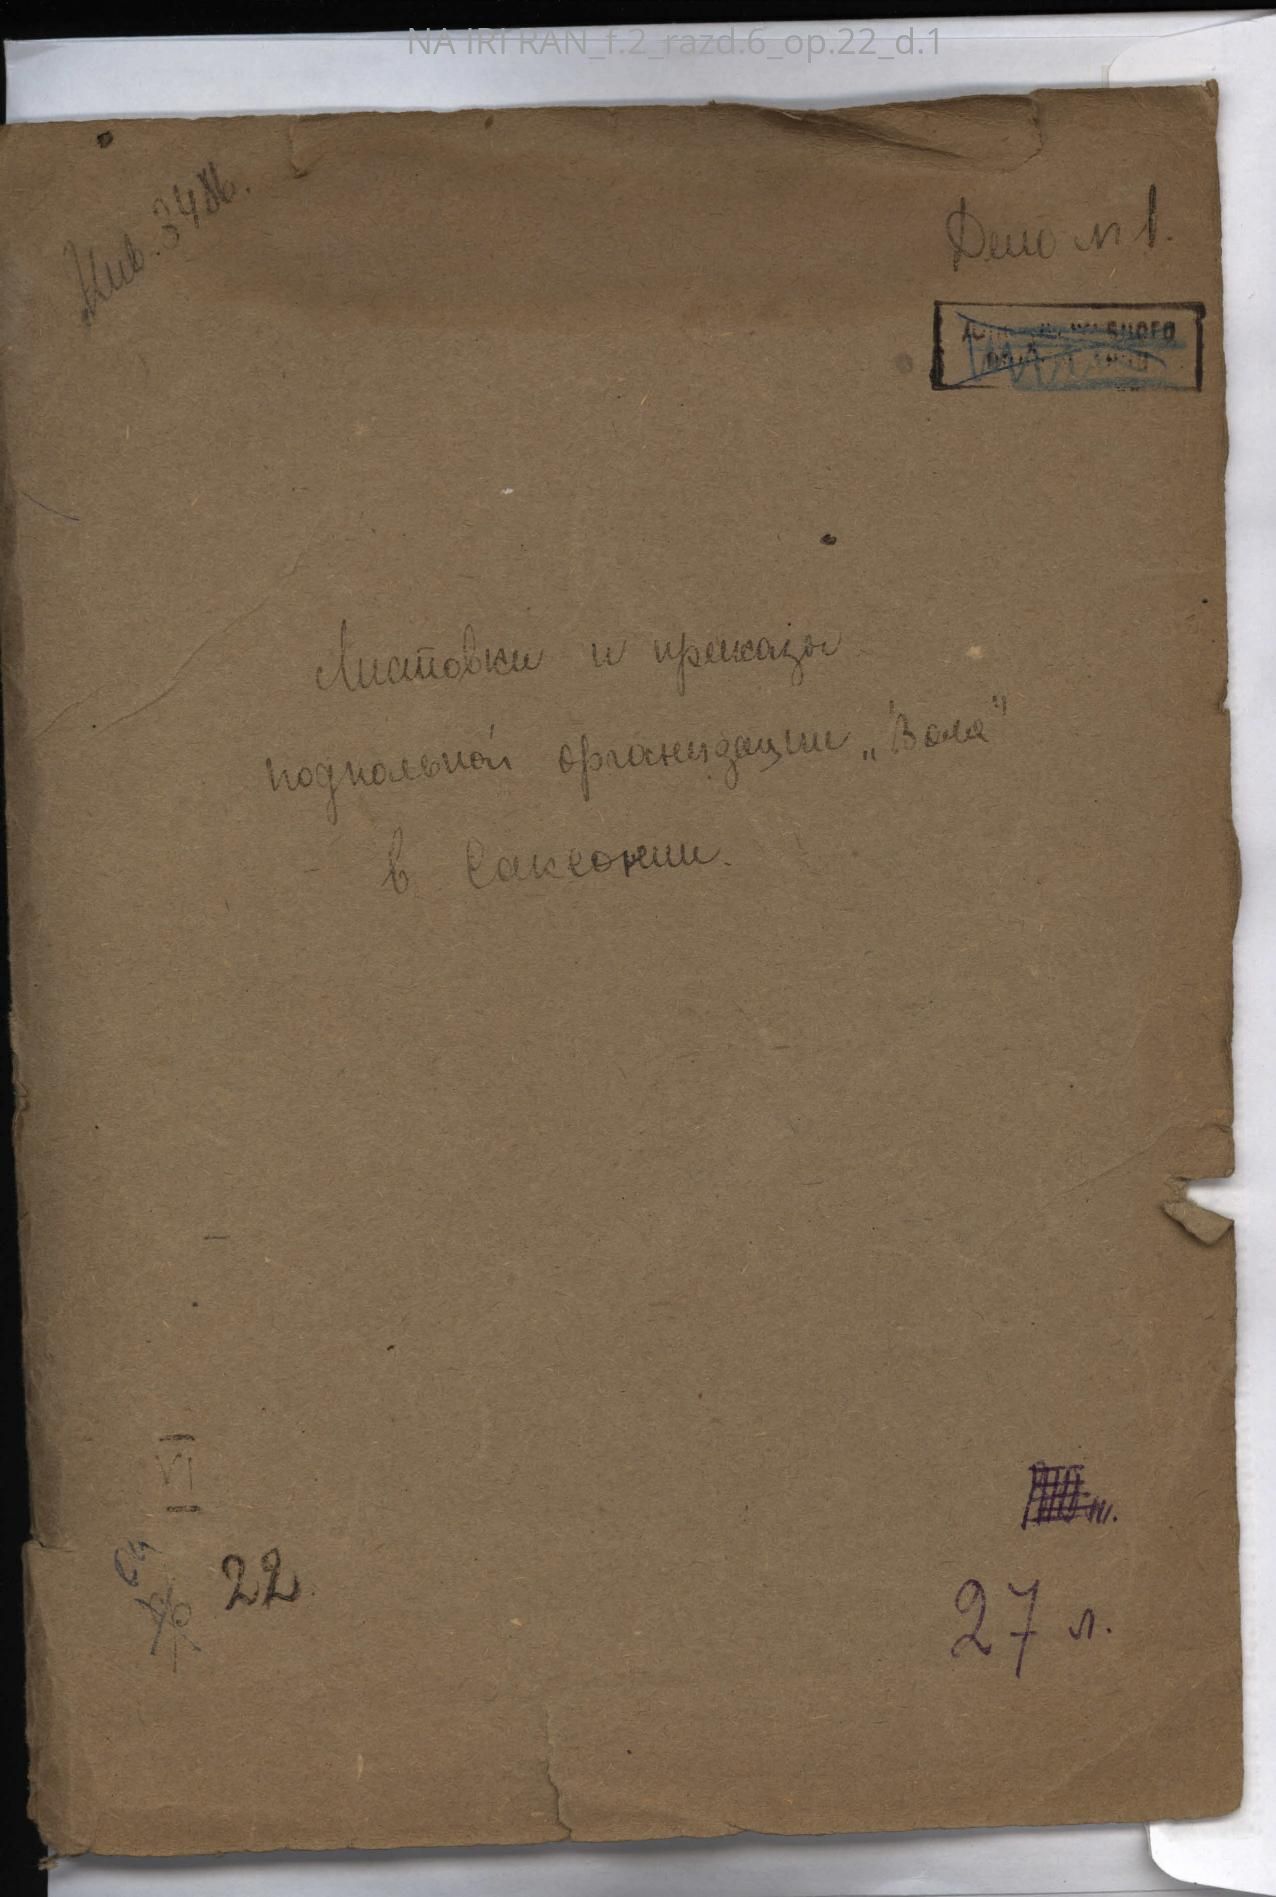 NA IRI RAN_f.2_razd.6_op.22_d.1
Инв. 3486.
Дело № 1.
Листовки и приказы
подпольной организации „Воля"
в Саксонии.
VI
22
27 л.